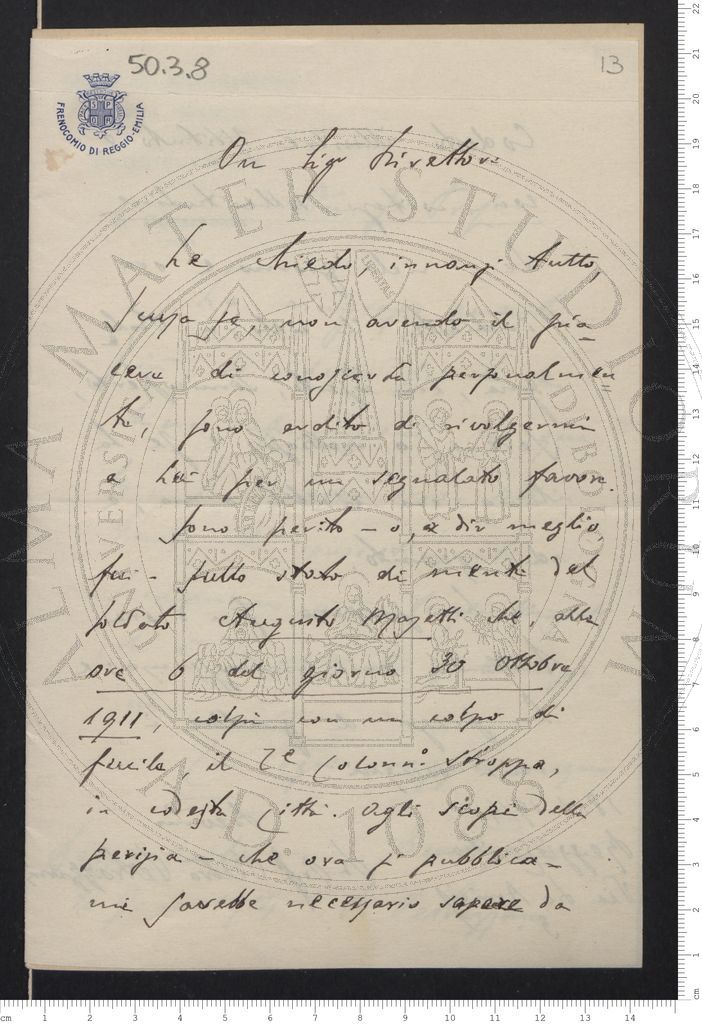 50.3.8
13
S P Q R
FRENOCOMIO DI REGGIO-EMILIA
On Sigr Direttore
Le chiedo, innanzi tutto,
scusa se, non avendo il pia-
cere di conoscerla personalmen=
te, sono ardito di rivolgermi
a Lei per un segnalato favore.
Sono perito – o, a dir meglio,
fui – sullo stato di mente del
soldato Augusto Masetti che, alle
ore 6 del giorno 30 Ottobre
1911, colpì con un colpo di
fucile, il Te Colonno Stroppa,
in codesta Città. Agli scopi della
perizia – che ora si pubblica –
mi sarebbe necessario sapere da
ALMA MATER STUDIORUM
A.D. 1088
cm 1 2 3 4 5 6 7 8 9 10 11 12 13 14
22
21
20
19
18
17
16
15
14
13
12
11
10
9
8
7
6
5
4
3
2
1
cm